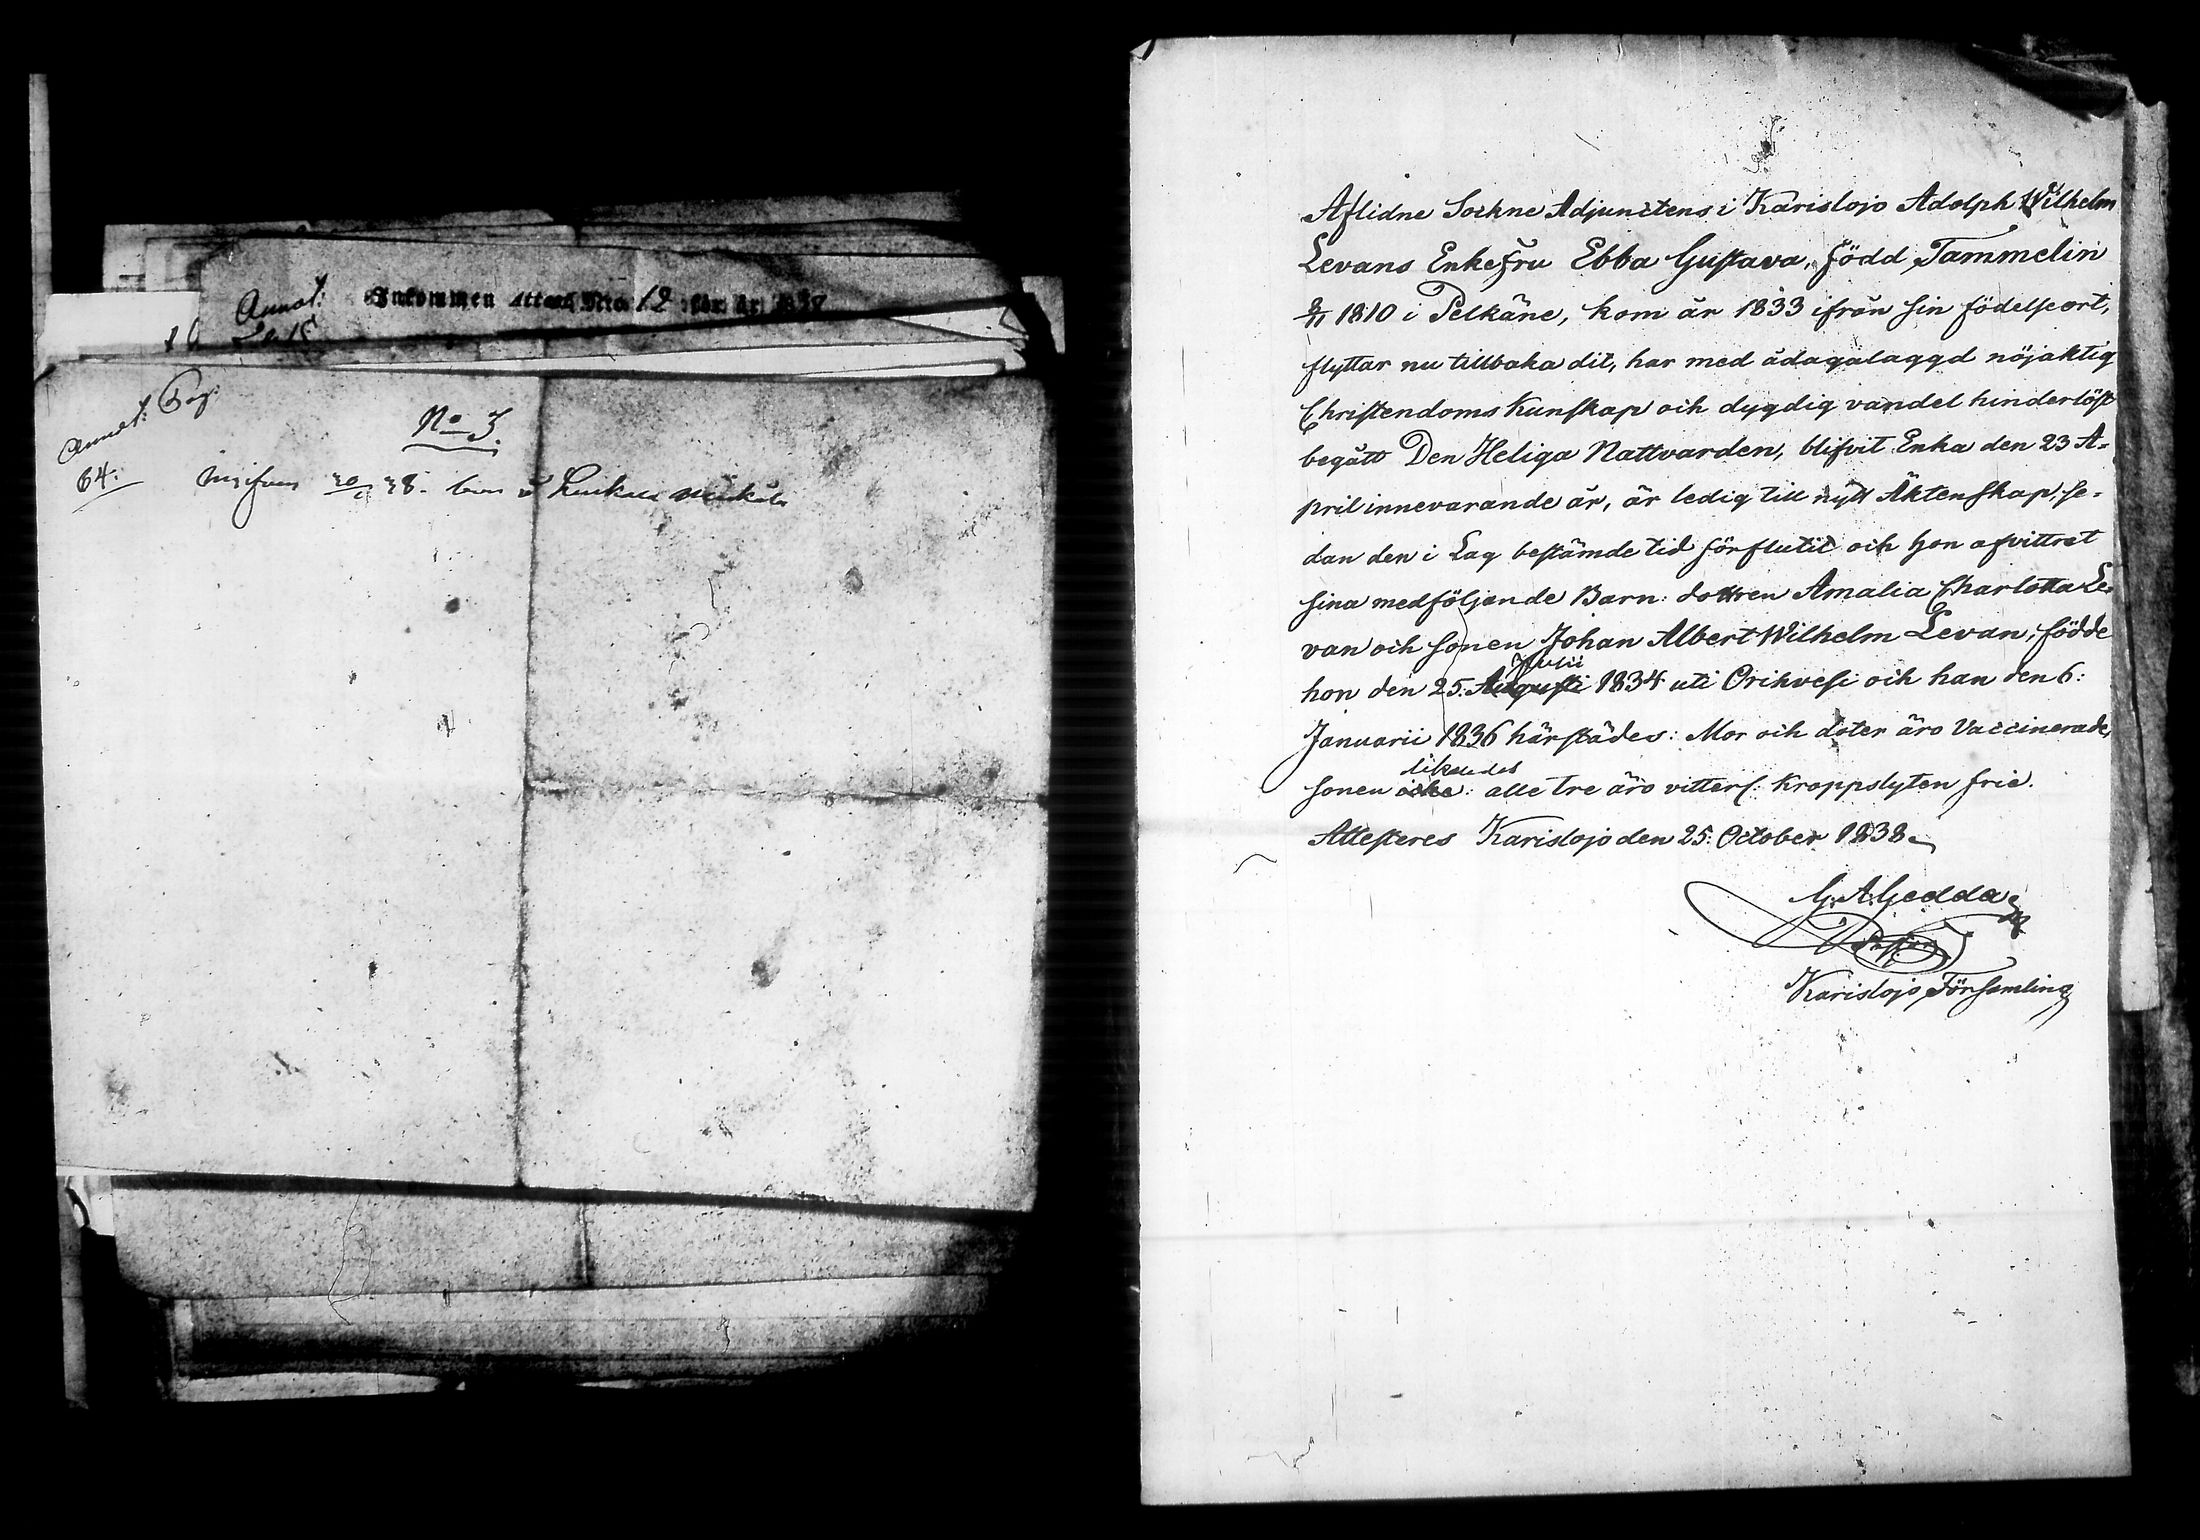 Annot:
Inkommen attest Nro 12 för år 1838
Annot: Pag:
64:
No 3.
Aflidne Sockne Adjunctens i Karislojo Adolph Wilhelm
Levans Enkefru Ebba Gustava, född Tammelin
1810 i Pelkäne, kom år 1833 ifrån sin födelseort,
flyttar nu tillbaka dit, har med ådagalaggd nöjaktig
Christendoms Kunskap och dygdig vandel hinderlöst
begått Den Heliga Nattvarden, blifvit Enka den 23 A-
pril innevarande år, är ledig till nytt Äktenskap, se-
dan den i Lag bestämde tid förflutit och hon afvittrat
sina medföljande Barn: dottren Amalia Charlotta Le-
van och sonen Johan Albert Wilhelm Levan, födde
Julii
hon den 25: Augusti 1834 uti Orihvesi och han den 6:
Januarii 1836 härstädes: Mor och doter äro Vaccinerade,
likaledes
sonen icke: alle tre äro vitterl: Kroppslyten frie.
Attesteres Karislojo den 25: October 1838
G. A. Gedda
Pastor
Karislojo Församling